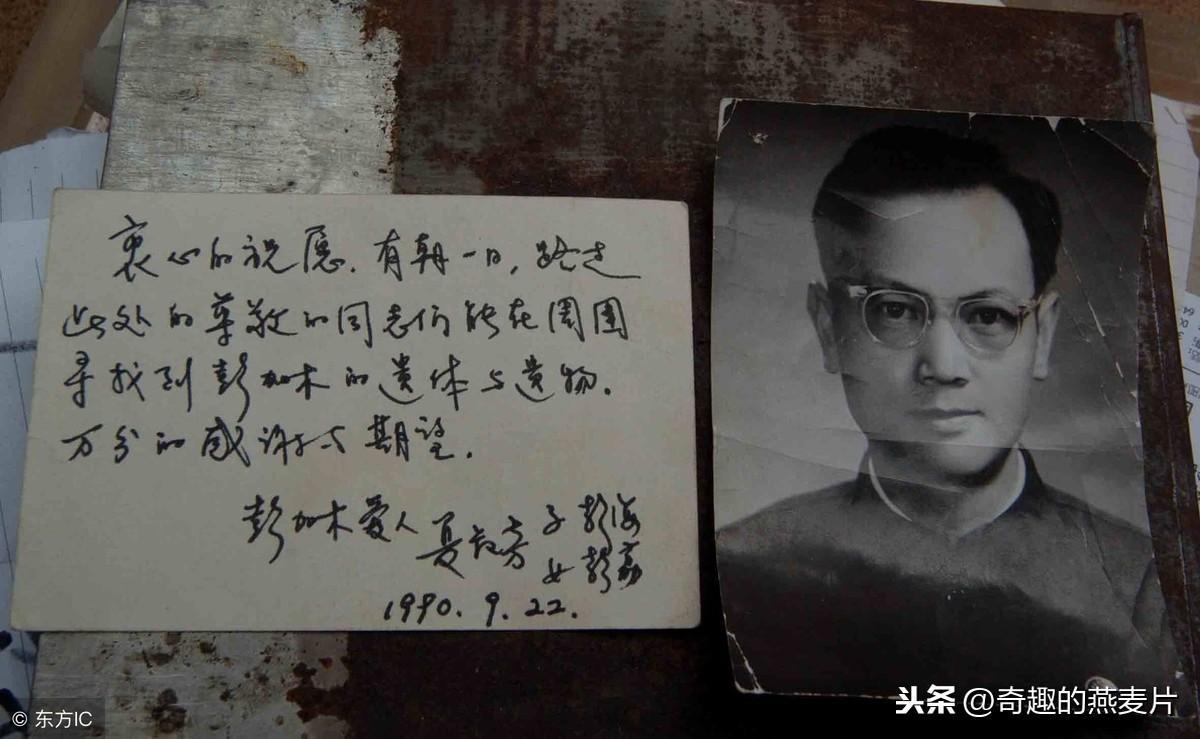 衷心的祝愿. 有朝一日, 路过
此处的尊敬的同志们能在周围
寻找到彭加木的遗体与遗物.
万分的感谢与期望.
彭加木爱人 夏叔芳 子 彭海
女 彭荔
1990. 9. 22.
© 东方IC
头条 @奇趣的燕麦片